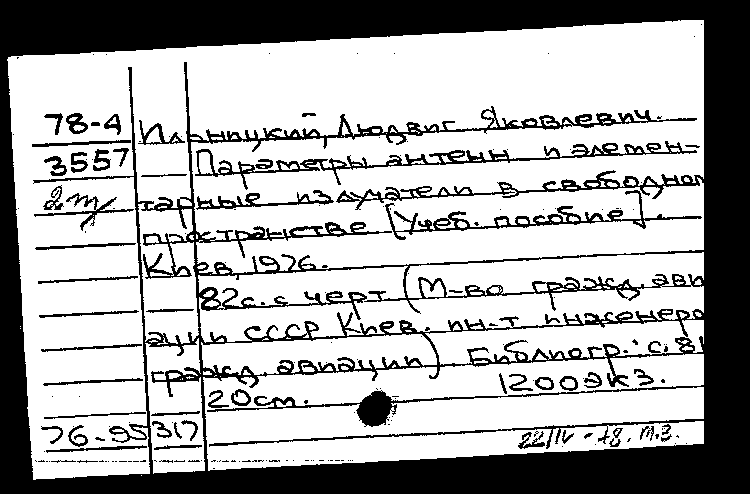 78-4 Ильницкий, Людвиг Яковлевич.
3557 Параметры антенн и элемен=
2т/ тарные излучатели в свободном
пространстве [Учеб. пособие].
Киев, 1976.
82с. с черт (М-во гражд. ави
ации СССР Киев. ин-т инженеро
гражд. авиации) Библиогр.: с. 81
20см. 1200экз.
76-95317
22/IV-78. м.з.